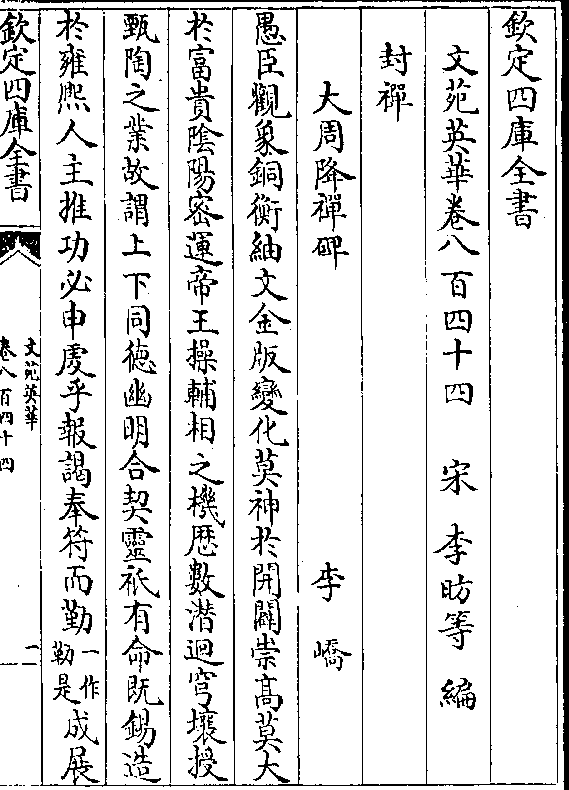 欽定四庫全書
文苑英華卷八百四十四 宋 李昉等 編
封禪
大周降禪碑 李嶠
愚臣觀象銅衡紬文金版變化莫神於開闢崇髙莫大
於富貴陰陽宻運帝王操輔相之機厯數潛迴穹壤授
甄陶之業故謂上下同德幽明合契靈祇有命旣錫造
於雍熙人主推功必申虔乎報謁奉符而勤一作勒是成展
欽定四庫全書
文苑英華
卷八百四十四
一